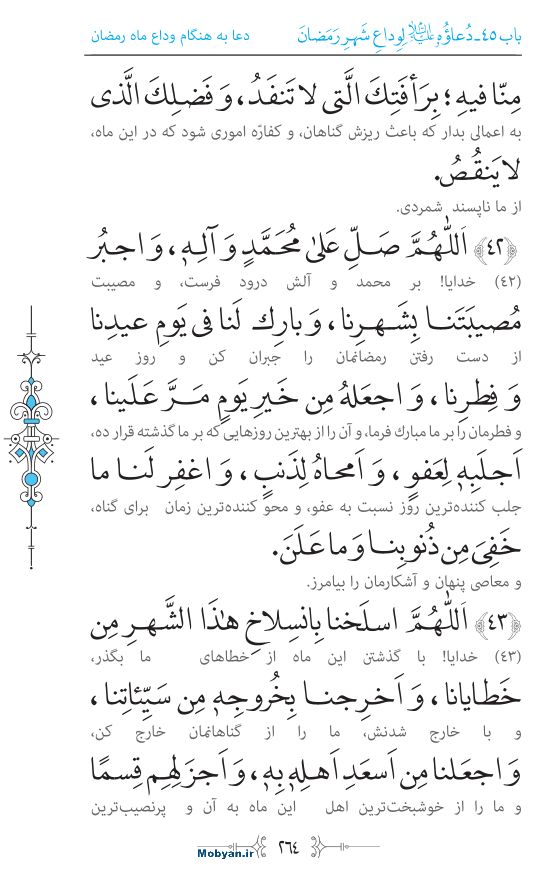 باب ٤٥-دُعاؤُهُ عليه‌السلام لِوِداعِ شَهرِ رَمَضانَ
دعا به هنگام وداع ماه رمضان
مِنّا فيهِ؛ بِرَأفَتِكَ الَّتى لا تَنفَدُ، وَ فَضلِكَ الَّذى
به اعمالی بدار که باعث ریزش گناهان، و کفارّه اموری شود که در این ماه،
لا يَنقُصُ.
از ما ناپسند شمردی.
﴿٤٢﴾ اَللّٰهُمَّ صَلِّ عَلىٰ مُحَمَّدٍ وَ آلِهٖ، وَ اجبُر
(٤٢) خدایا! بر محمد و آلش درود فرست، و مصیبت
مُصيبَتَنا بِشَهرِنا، وَ بارِك لَنا فى يَومِ عيدِنا
از دست رفتن رمضانمان را جبران کن و روز عید
وَ فِطرِنا، وَ اجعَلهُ مِن خَيرِ يَومٍ مَرَّ عَلَينا،
و فطرمان را بر ما مبارك فرما، و آن را از بهترین روزهایی که بر ما گذشته قرار ده،
اَجلَبِهٖ لِعَفوٍ، وَ اَمحاهُ لِذَنبٍ، وَ اغفِر لَنا ما
جلب کننده‌ترین روز نسبت به عفو، و محو کننده‌ترین زمان برای گناه،
خَفِىَ مِن ذُنوبِنا وَ ما عَلَنَ.
و معاصی پنهان و آشکارمان را بیامرز.
﴿٤٣﴾ اَللّٰهُمَّ اسلَخنا بِانسِلاخِ هٰذَا الشَّهرِ مِن
(٤٣) خدایا! با گذشتن این ماه از خطاهای ما بگذر،
خَطايانا، وَ اَخرِجنا بِخُروجِهٖ مِن سَيِّئاتِنا،
و با خارج شدنش، ما را از گناهانمان خارج کن،
وَ اجعَلنا مِن اَسعَدِ اَهلِهٖ بِهٖ، وَ اَجزَلِهِم قِسمًا
و ما را از خوشبخت‌ترین اهل این ماه به آن و پرنصیب‌ترین
٢٦٤
Mobyan.ir